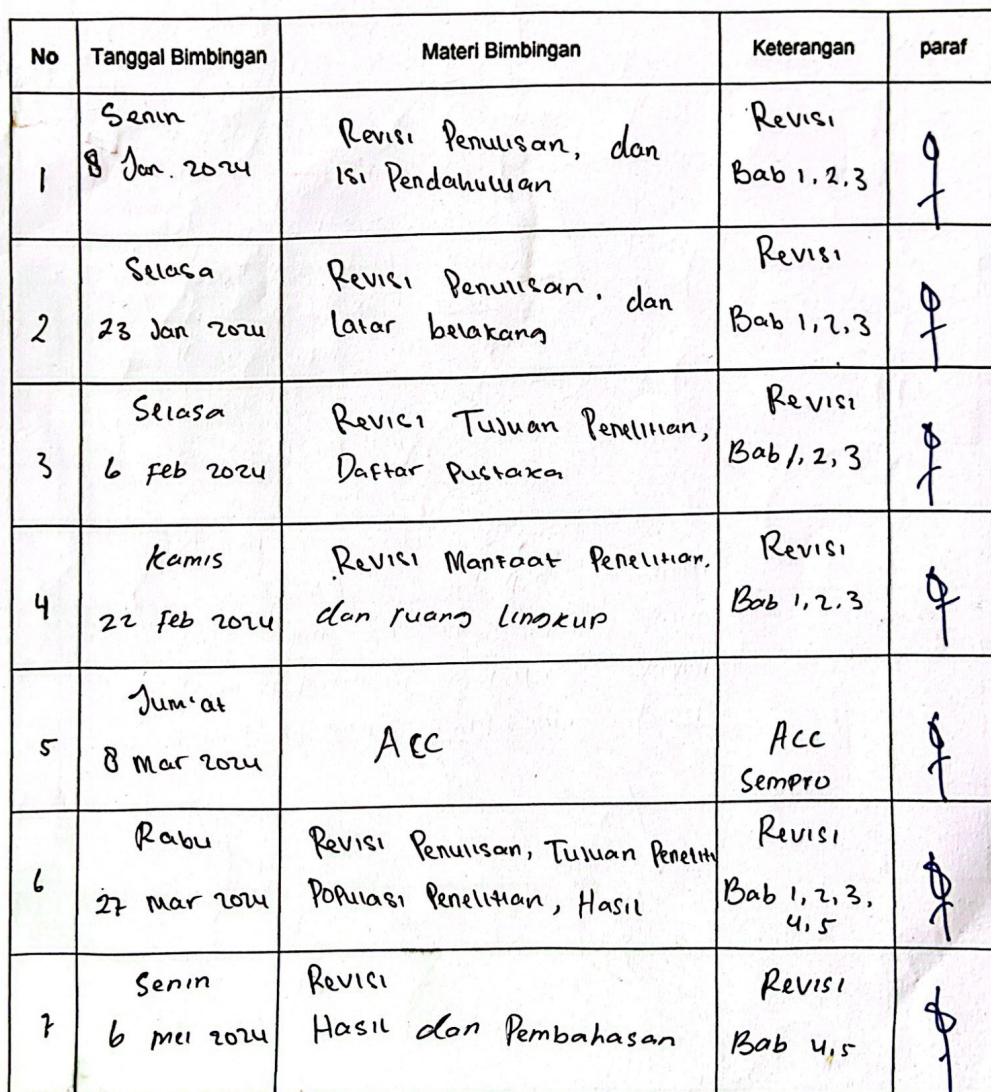 No Tanggal Bimbingan Materi Bimbingan Keterangan paraf
Senin
8 Jan. 2024
1
Revisi Penulisan, dan
isi Pendahuluan
Revisi
Bab 1, 2, 3
Selasa
2
23 Jan 2024
Revisi Penulisan, dan
latar belakang
Revisi
Bab 1, 2, 3
Selasa
3
6 Feb 2024
Revisi Tujuan Penelitian,
Daftar Pustaka
Revisi
Bab 1, 2, 3
Kamis
4
22 Feb 2024
Revisi Manfaat Penelitian.
dan ruang lingkup
Revisi
Bab 1, 2, 3
Jum'at
5
8 Mar 2024
ACC
Acc
Sempro
Rabu
6
27 Mar 2024
Revisi Penulisan, Tujuan Peneliti
Populasi Penelitian, Hasil
Revisi
Bab 1, 2, 3,
4, 5
Senin
7
6 Mei 2024
Revisi
Hasil dan Pembahasan
Revisi
Bab 4, 5